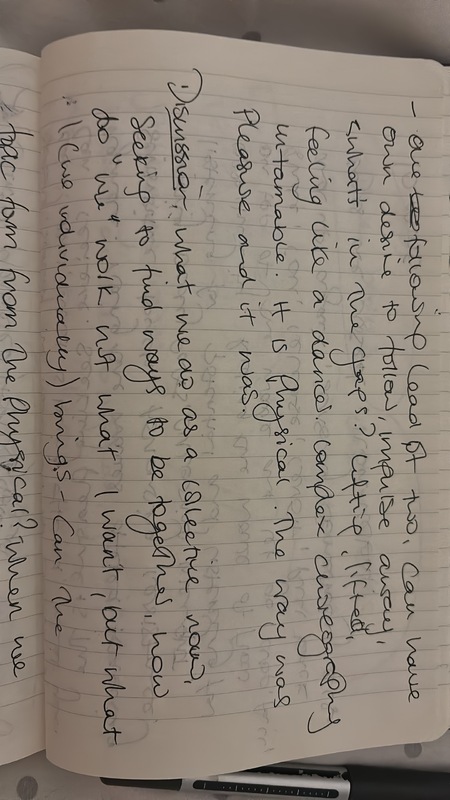 - one following lead of two, can have
own desire to follow, impulse away,
what's in the gaps? Lifting, lifted,
feeling like a dance complex choreography
untamable. It is Physical. The way was
Pleasure and it was.
Discussion, what we do as a collective now,
Seeking to find ways to be together, how
do "we" work not what I want, but what
I (we individually) brings - Can the
form from the Physical? When we